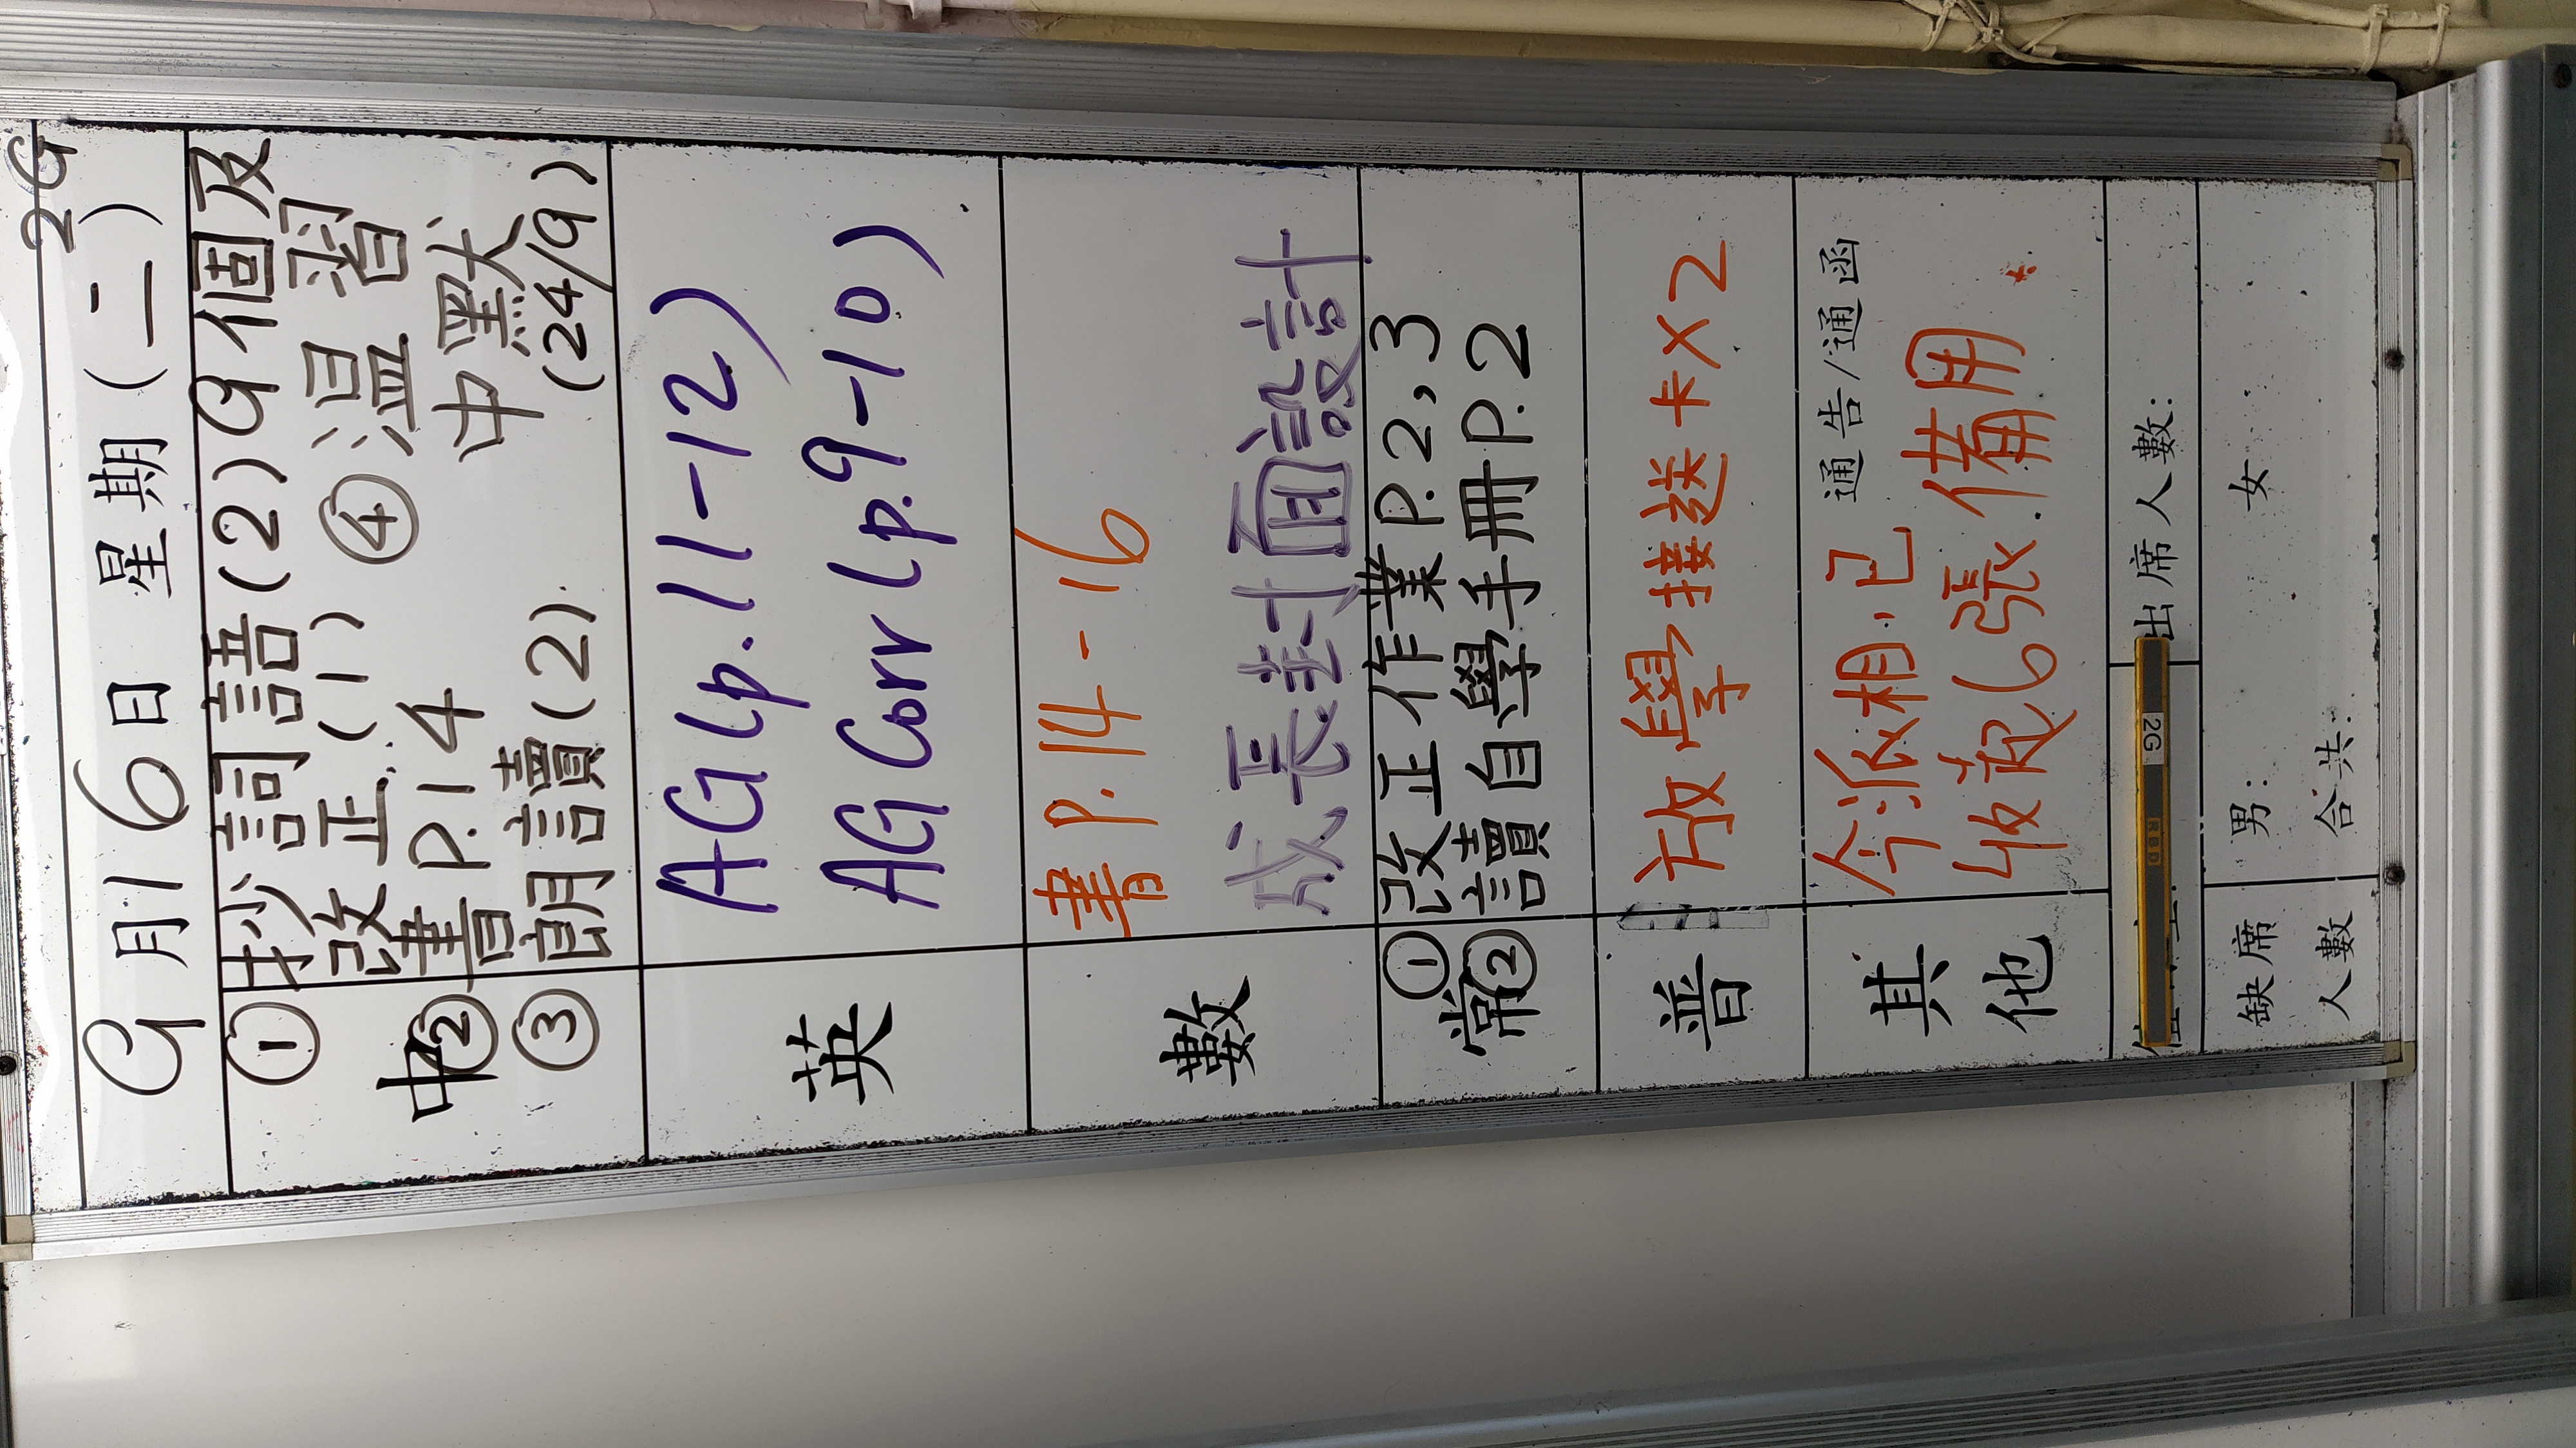 2G
9月16日 星期(二)
中
①抄詞語(2)9個及
改正(1) ④溫習
②書P.14 中默
③朗讀(2) (24/9)
英
AG(p.11-12)
AG Corr(p.9-10)
數
書p.14-16
成長封面設計
常
①改正作業P.2,3
②讀自學手冊P.2
普
放學接送卡X2
其他
通告/通函
今派相,已
收起6張備用
出席人數:
2G
缺席人數
男: 女
合共: